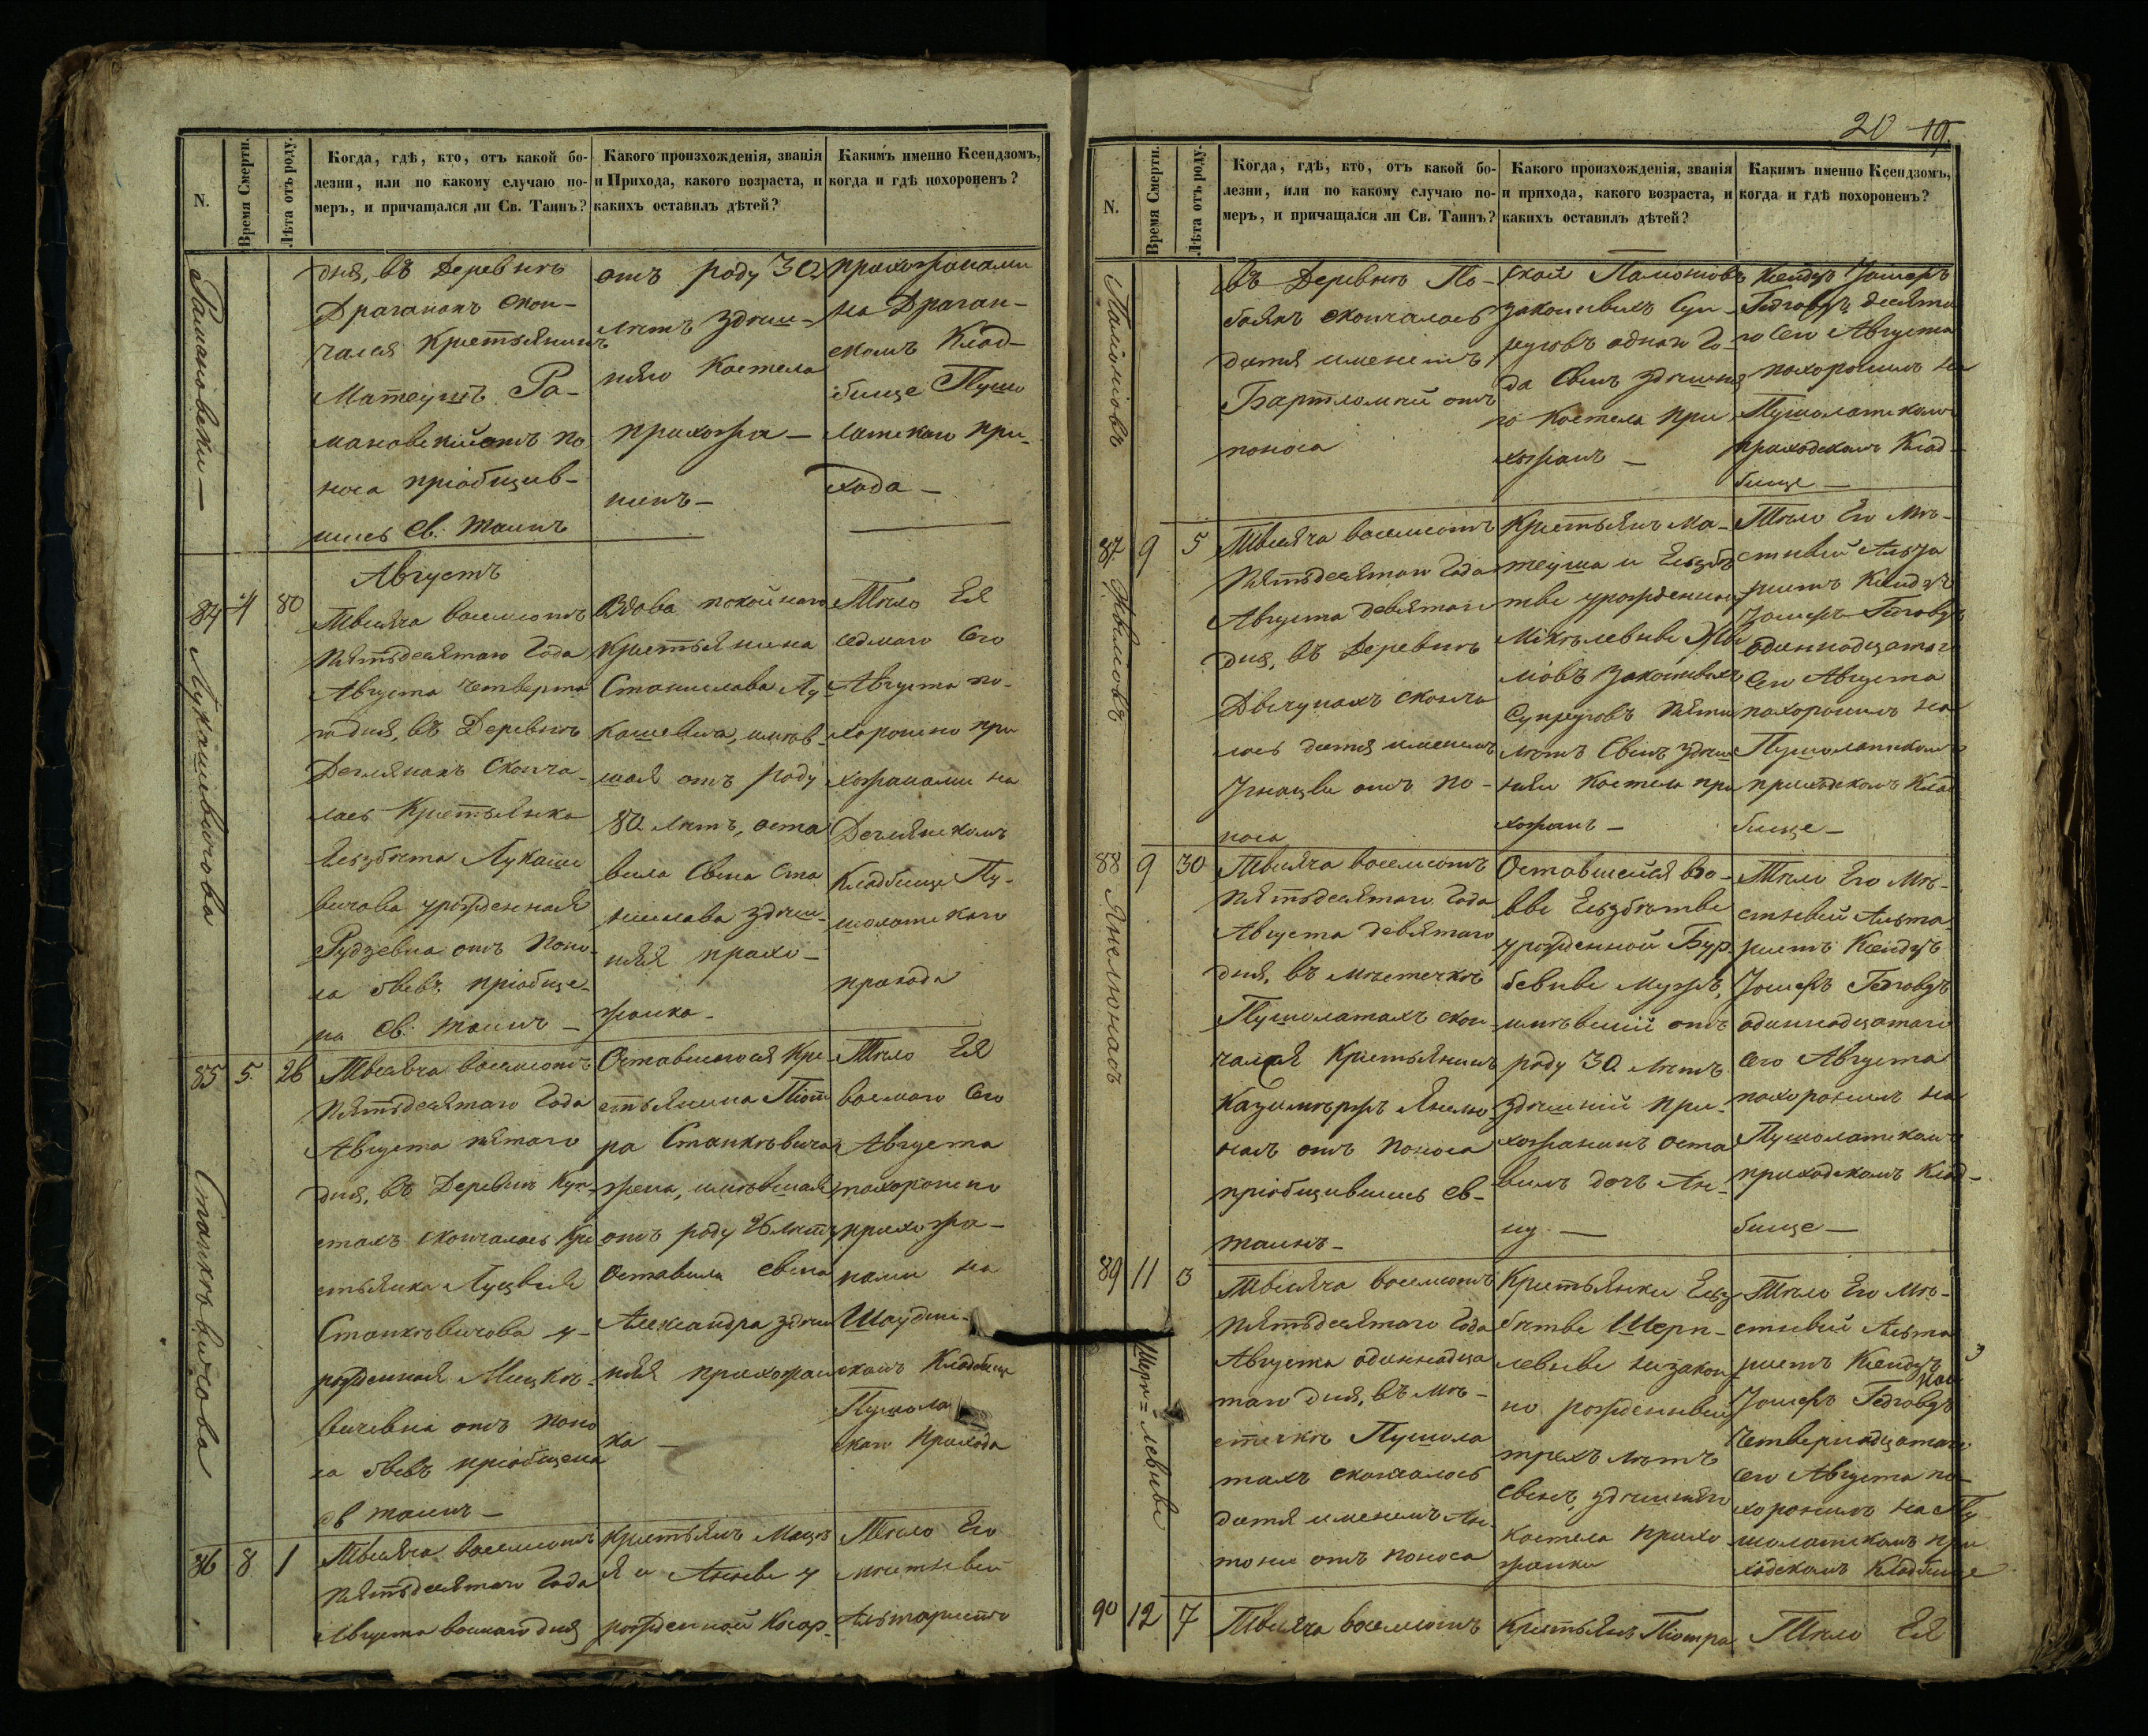 N.
Время Смерти.
Лѣта отъ роду.
Когда, гдѣ, кто, отъ какой бо-
лезни, или по какому случаю по-
меръ, и причащался ли Св. Таинъ?
Какого произхожденія, званія
и Прихода, какого возраста, и
какихъ оставилъ дѣтей?
Какимъ именно Ксендзомъ,
когда и гдѣ похороненъ?
Рамановскій —
дня, въ Деревнѣ
Драганахъ скон-
чался Крестьянинъ
Матеушъ Ра-
мановскій отъ по
носа пріобщив-
шись Св. Таинъ
отъ роду 30
лѣтъ здѣш-
няго Костела
прихожа —
нинъ —
прихожанами
на Драган-
скомъ Клад-
бище Пушо
латскаго при-
хода —
Августъ
84
4
80
Лукашевичова
Тысяча восемсотъ
пятьдесятаго Года
Августа четверта
го дня, въ Деревнѣ
Деглянахъ сконча-
лась Крестьянка
Ельзбѣта Лукаше
вичова урожденная
Рудзевна отъ поно-
са бывъ пріобще-
на Св. Таинъ —
Вдова покойнаго
Крестьянина
Станислава Лу
кашевича, имѣв-
шая отъ роду
80 лѣтъ, оста
вила сына Ста
нислава здѣш-
няя прихо-
жанка —
Тѣло Ея
седмаго сего
Августа по-
хоронено при
хожанами на
Деглянскомъ
Кладбище Пу-
шолатскаго
прихода
85
5
26
Станкѣвичова
Тысяча восемсотъ
пятьдесятаго Года
Августа пятаго
дня, въ Деревнѣ Куп-
стахъ скончалась Кре
стьянка Луцыя
Станкѣвичова у-
рожденная Мицкѣ-
вичевна отъ поно
са бывъ пріобщена
Св Таинъ —
Оставшагося Кре-
стьянина Піот
ра Станкѣвича
жена, имѣвшая
отъ роду 26 лѣтъ
оставила сына
Александра здѣш
няя прихожан
ка —
Тѣло Ея
восмаго сего
Августа
похоронено
прихожа-
нами на
скомъ Кладбище
Пушола
скаго прихода
86
8
1
Тысяча восемсотъ
пятьдесятаго Года
Августа восмаго дня
Крестьянъ Мацѣ
я и Анны у
рожденной Косар-
Тѣло Его
мѣстный
Альтаристъ
20 19.
N.
Время Смерти.
Лѣта отъ роду.
Когда, гдѣ, кто, отъ какой бо-
лезни, или по какому случаю по-
меръ, и причащался ли Св. Таинъ?
Какого произхожденія, званія
и прихода, какого возраста, и
какихъ оставилъ дѣтей?
Какимъ именно Ксендзомъ,
когда и гдѣ похороненъ?
въ Деревнѣ По-
скончалось
дитя именемъ
Бартломѣй отъ
поноса
законныхъ Суп-
руговъ одного Го-
да сынъ здѣшня
го Костела при
хожанъ —
Ксендзъ Іосифъ
Гедговдъ десята
го сего Августа
похоронилъ на
Пушолатскомъ
приходскомъ Клад-
бище —
87
9
5
Тысяча восемсотъ
пятьдесятаго Года
Августа девятаго
дня, въ Деревнѣ
Двигунахъ сконча
лось дитя именемъ
Игнацы отъ по-
носа
Крестьянъ Ма-
теуша и Ельзбѣ
ты урожденной
законныхъ
Супруговъ пяти
лѣтъ сынъ здѣш
няго Костела при
хожанъ —
Тѣло Его мѣ-
стный Альта
ристъ Ксендзъ
Іосифъ Гедговдъ
одиннадцатаго
сего Августа
похоронилъ на
Пушолатскомъ
приходскомъ Клад
бище —
88
9
30
Янелюнасъ
Тысяча восемсотъ
пятьдесятаго Года
Августа девятаго
дня, въ мѣстечкѣ
Пушолатахъ скон-
чался Крестьянинъ
Казимѣржъ Янелю-
насъ отъ поноса
пріобщившись Св-
Таинъ —
Оставшейся вдо-
вы Ельзбѣты
урожденной Бур-
бевны мужъ,
имѣвшій отъ
роду 30 лѣтъ
здѣшній при-
хожанинъ оста
вилъ дочь Ан-
ну —
Тѣло Его мѣ-
стный Альта-
ристъ Ксендзъ
Іосифъ Гедговдъ
одиннадцатаго
сего Августа
похоронилъ на
Пушолатскомъ
приходскомъ Клад-
бище —
89
11
3
Шерп=левны
Тысяча восемсотъ
пятьдесятаго Года
Августа одиннадца
таго дня, въ мѣ-
стечкѣ Пушола
тахъ скончалось
дитя именемъ Ан-
тони отъ поноса
Крестьянки Ельз
бѣты Шерп-
левны незакон
но рожденный
трехъ лѣтъ
сынъ, здѣшняго
костела прихо
жанки
Тѣло Его мѣ-
стный Альта
ристъ Ксендзъ
Іосифъ Гедговдъ
четвернадцатаго
сего Августа по-
хоронилъ на Пу
шолатскомъ при
ходскомъ Кладбище
90
12
7
Тысяча восемсотъ
Крестьянъ Піотра
Тѣло Ея